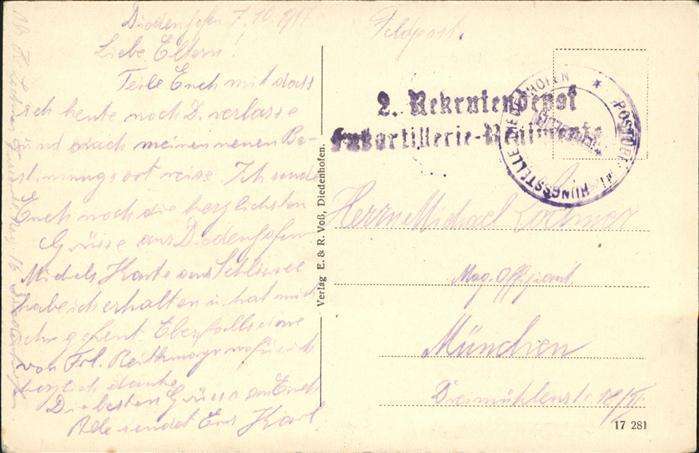 Diedenhofen 7.10.1917
Liebe Eltern!
Teile Euch mit dass
ich heute noch D. verlasse
und nach meinem neuen Be-
stimmungsort reise. Ich sende
Euch noch die herzlichsten
Grüsse aus Diedenhofen
Michels Karte aus
habe ich erhalten u. hat mich
sehr gefreut Ebenfalls eine
von Frl. wofür ich
herzlich danke.
Die besten Grüsse an Euch
Alle sendet Eur Karl
Verlag E. & R. Voß, Diedenhofen.
Feldpost.
2. Rekrutendepot
Fußartillerie-Regiments
DIEDENHOFEN * POSTÜBERWACHUNGSSTELLE
Herrn Michael
Mag. Offiziant
München
Dreimühlenstr.
17 281